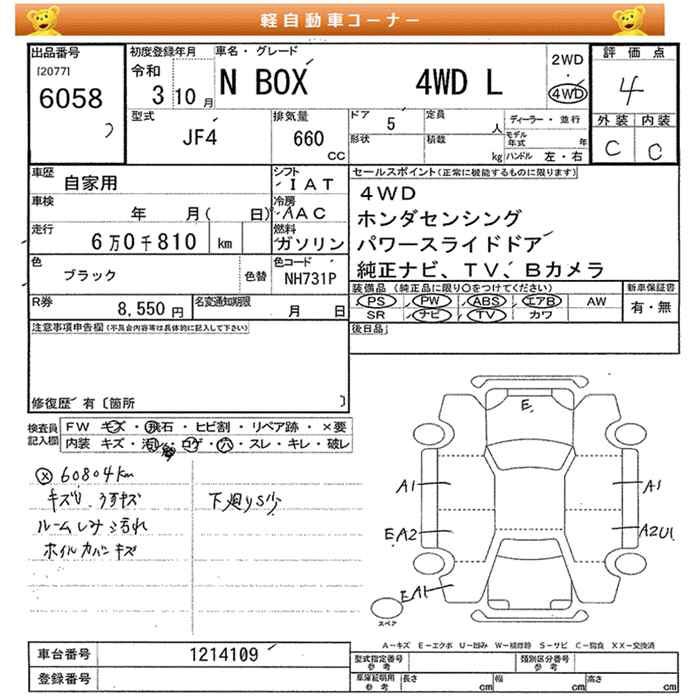 軽自動車コーナー
出品番号
[2077]
6058
初度登録年月
令和
3 10月
車名・グレード
N BOX 4WD L
2WD
・
4WD
評価点
4
外装 内装
C C
型式
JF4
排気量
660
CC
ドア
5
定員
人
形状
積載
kg
ディーラー・並行
モデル年式
年
ハンドル 左・右
車歴
自家用
シフト
IAT
車検
年 月( 日)
冷房
AAC
走行
6万0千810 km
燃料
ガソリン
色
ブラック
色替
色コード
NH731P
R券
8,550円
名変通知期限
月 日
セールスポイント(正常に機能するものに限ります)
4WD
ホンダセンシング
パワースライドドア
純正ナビ、TV、Bカメラ
装備品(純正品に限り○をつけてください)
新車保証書
PS PW ABS エアB AW
SR ナビ TV カワ
有・無
後日品
注意事項申告欄(不具合内容等は具体的に記入して下さい)
修復歴 有〔箇所 〕
検査員記入欄
FW キズ・飛石・ヒビ割・リペア跡・×要
内装 キズ・汚れ・コゲ・穴・スレ・キレ・破レ
60804km
キズU、うすキズ
ルームしみ汚れ
ホイルカバーキズ
下廻りS少
E
A1
A1
EA2
A2U1
EA1
E
スペア
A-キズ E-エクボ U-凹み W-補修跡 S-サビ C-腐食 XX-交換済
車台番号
1214109
登録番号
型式指定番号
参考
類別区分番号
参考
車庫証明用
参考
長さ cm
幅 cm
高さ cm